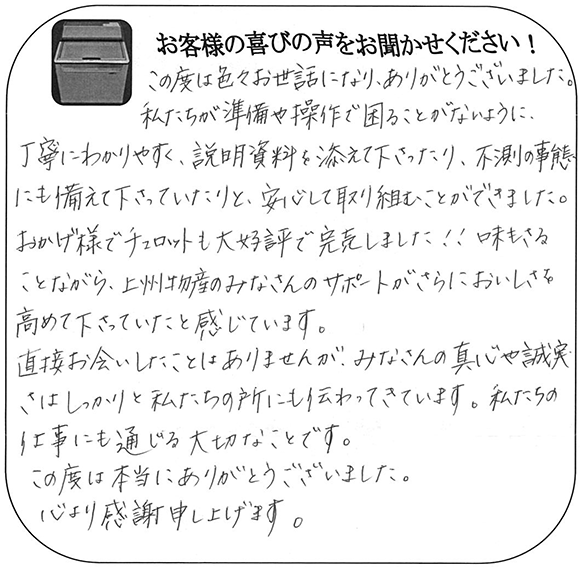 お客様の喜びの声をお聞かせください！
この度は色々お世話になり、ありがとうございました。
私たちが準備や操作で困ることがないように、
丁寧にわかりやすく、説明資料を添えて下さったり、不測の事態
にも備えて下さっていたりと、安心して取り組むことができました。
おかげ様でチュロットも大好評で完売しました!! 味もさる
ことながら、上州物産のみなさんのサポートがさらにおいしさを
高めて下さっていたと感じています。
直接お会いしたことはありませんが、みなさんの真心や誠実
さはしっかりと私たちの所にも伝わってきています。私たちの
仕事にも通じる大切なことです。
この度は本当にありがとうございました。
心より感謝申し上げます。